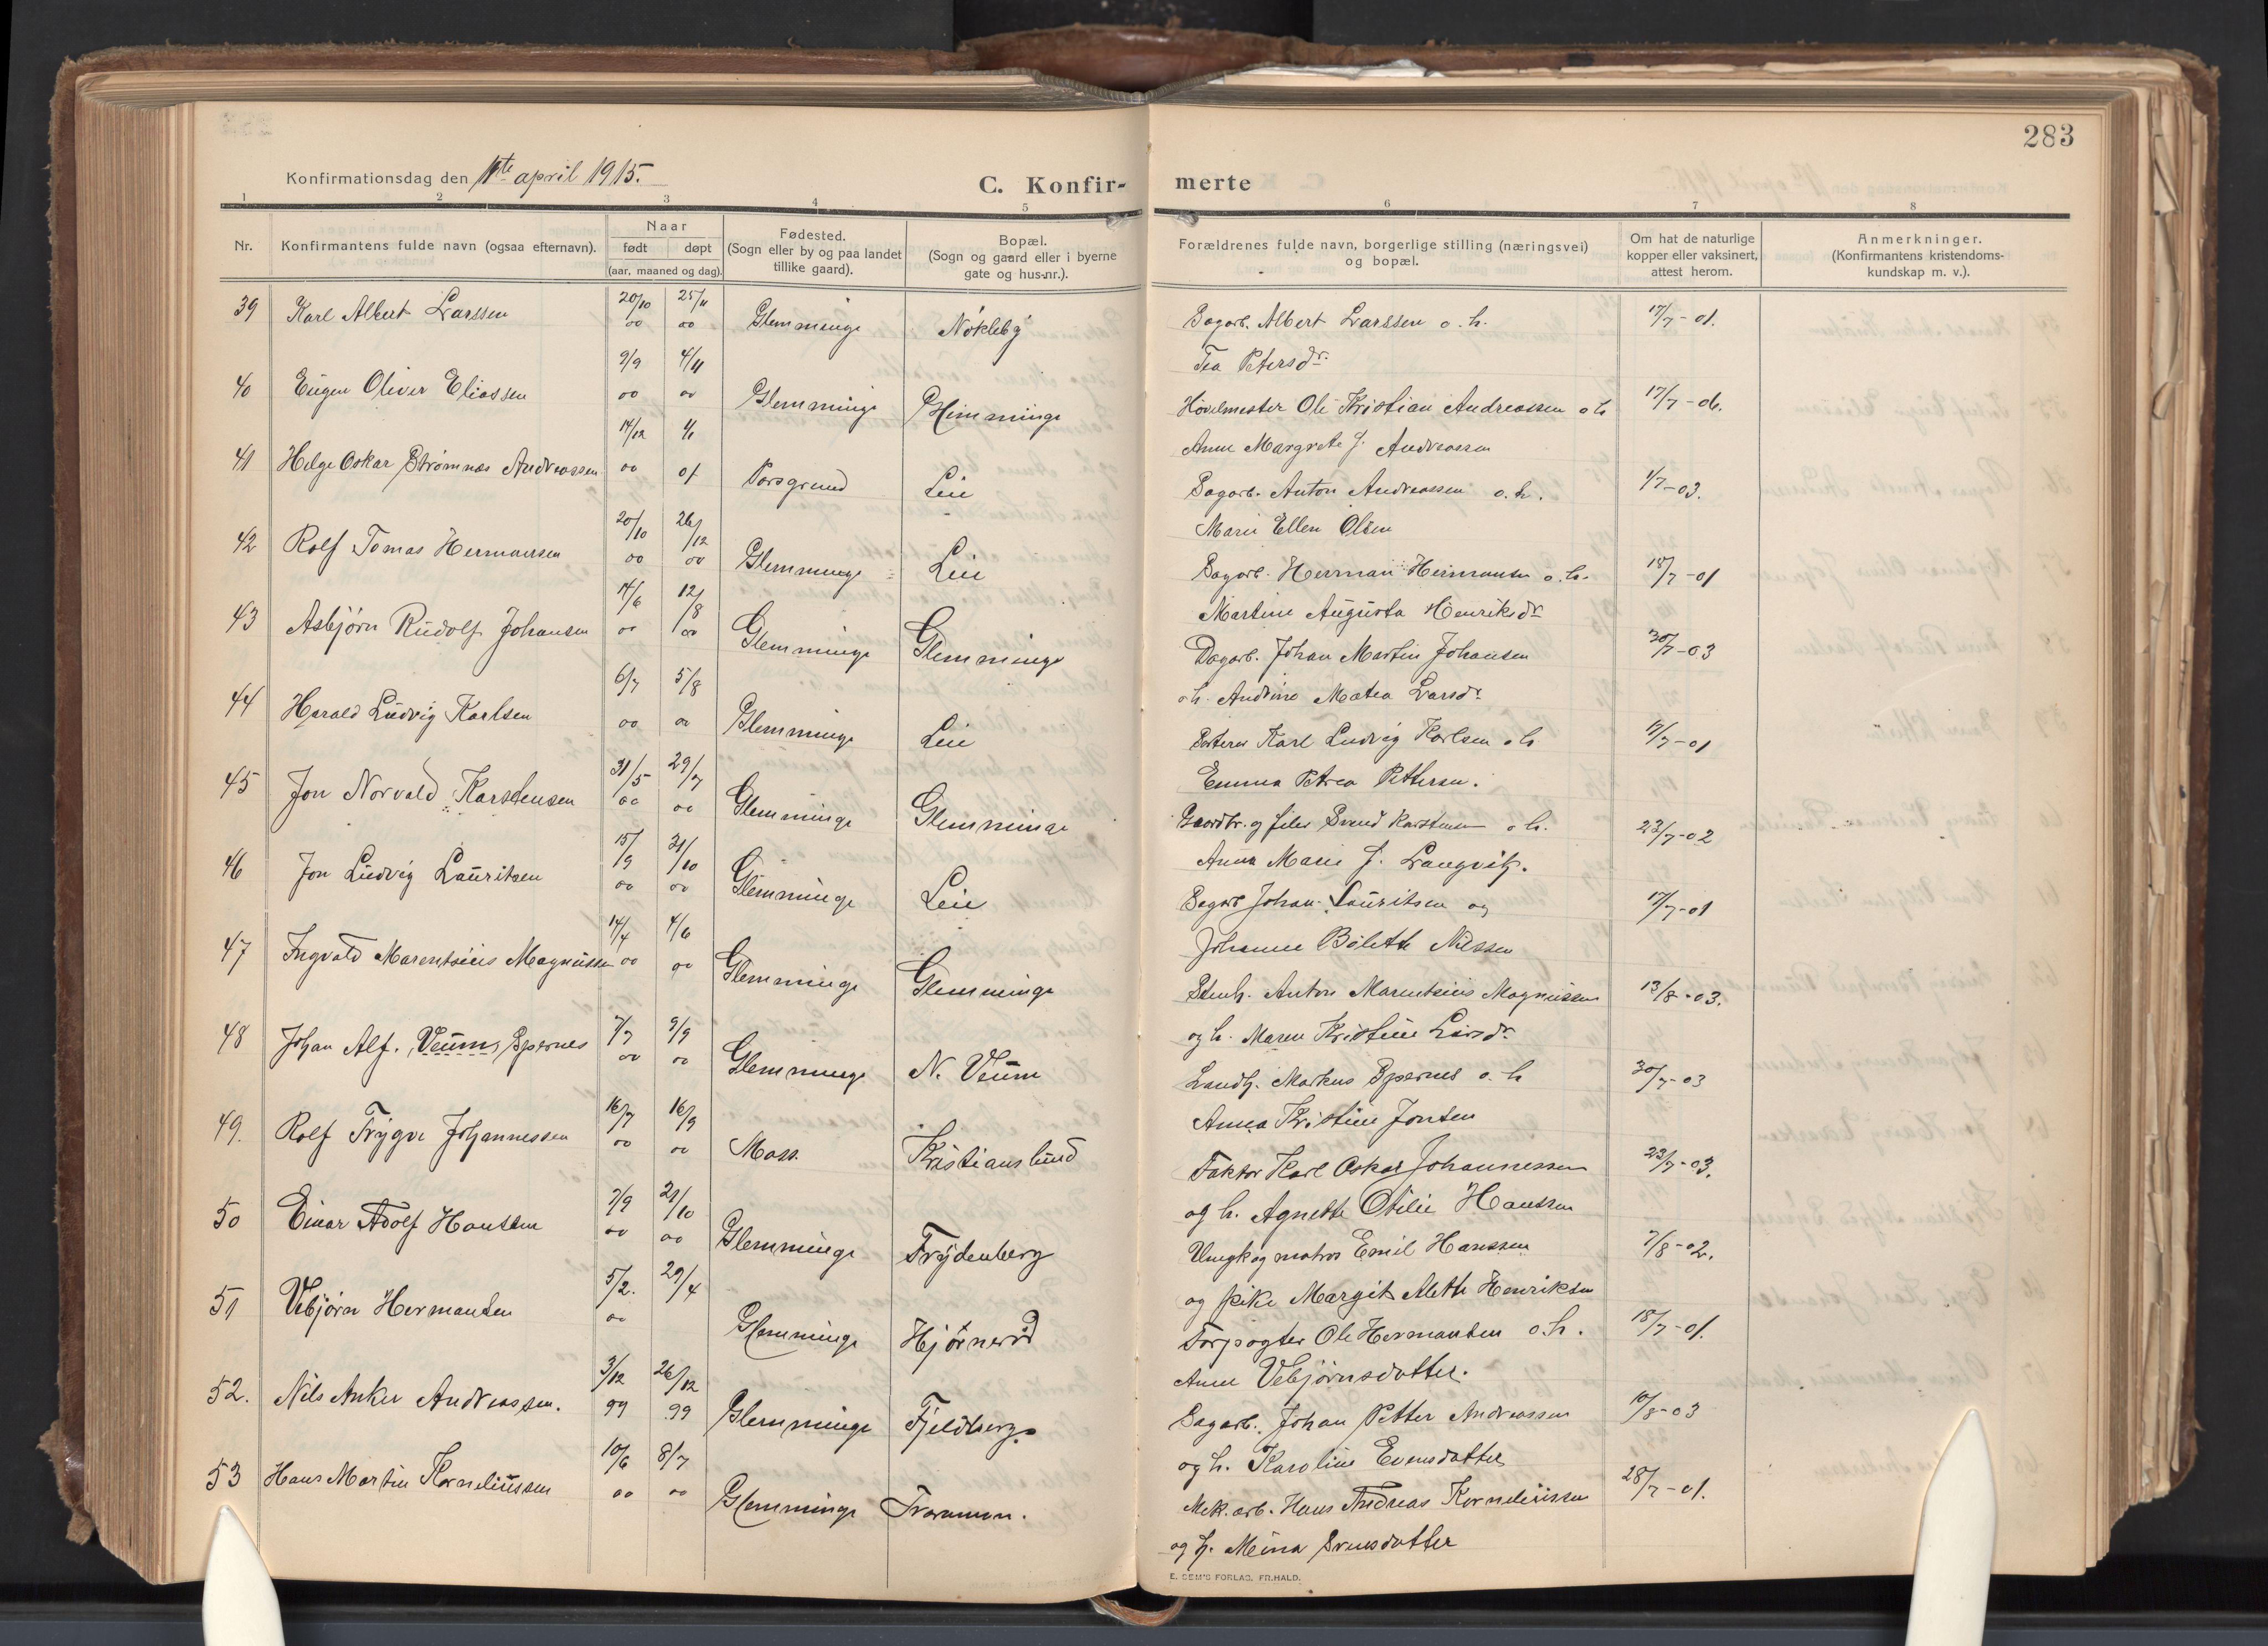 283
Konfirmationsdag den 11te april 1915.
C. Konfir-
merte
1 2 3 4 5 6 7 8
Nr.
Konfirmantens fulde navn (ogsaa efternavn).
Naar
født døpt
(aar, maaned og dag).
Fødested.
(Sogn eller by og paa landet
tillike gaard).
Bopæl.
(Sogn og gaard eller i byerne
gate og hus-nr.).
Forældrenes fulde navn, borgerlige stilling (næringsvei)
og bopæl.
Om hat de naturlige
kopper eller vaksinert,
attest herom.
Anmerkninger.
(Konfirmantens kristendoms-
kundskap m. v.).
39 Karl Albert Larssen 20/10 00 25/11 00 Glemminge Nökleby Sagarb. Albert Larssen o. h. 17/7-01.
Tea Petersdr.
40 Eugen Oliver Eliassen 9/9 00 4/11 00 Glemminge Glemminge Hövelmester Ole Kristian Andreassen o h 17/7-06.
Anne Margrete J. Andreassen
41 Helge Oskar Strømnæs Andreassen 14/12 00 1/1 01 Porsgrund Lie Sagarb. Anton Andreassen o. h. 1/7-03.
Marie Ellen Olsen
42 Rolf Tomas Hermansen 20/10 00 26/12 00 Glemminge Lie Sagarb. Herman Hermansen o. h. 18/7-01
Martine Augusta Henriksdr
43 Asbjörn Rudolf Johansen 14/6 00 12/8 00 Glemminge Glemminge Dagarb. Johan Martin Johansen 30/7-03
o h. Andrine Matea Larsdr
44 Harald Ludvig Karlsen 6/7 00 5/8 00 Glemminge Lie Sorterer Karl Ludvig Karlsen o h 17/7-01
Emma Petrea Pettersen.
45 Jon Norvald Karstensen 31/5 00 29/7 00 Glemminge Glemminge Gaardbr. og filer Svend Karstensen o h. 23/7-02
Anna Marie J. Langvik.
46 Jon Ludvig Lauritsen 15/9 00 21/10 00 Glemminge Lie Sagarb Johan Lauritsen og 17/7-01
Johanne Bolette Nilssen
47 Ingvald Marentsius Magnussen 14/4 00 4/6 00 Glemminge Glemminge Stenh. Anton Marentsius Magnussen 13/8-03.
og h. Maren Kristine Larsdr
48 Johan Alf. Veum, Spernes 7/7 00 9/9 00 Glemminge N. Veum Landh. Markus Spernes o. h 30/7-03
Anna Kristine Jonsen
49. Rolf Trygve Johannessen 16/7 00 16/9 00 Moss Kristianslund Faktor Karl Oskar Johannessen 23/7-03.
og h. Agnette Otilie Hanssen
50 Einar Adolf Hanssen 7/9 00 21/10 00 Glemminge Frydenberg Ungk og matros Emil Hanssen 7/8-02.
og pike Margit Alette Henriksen
51 Vebjörn Hermansen 5/2. 00 29/4 Glemminge Hjörneröd Forpagter Ole Hermansen o. h. 18/7-01.
Anne Vebjörnsdatter.
52. Nils Anker Andreassen. 3/12 99 26/12 99 Glemminge Fjeldberg Sagarb. Johan Petter Andreassen 10/8-03
og h. Karoline Evensdatter
53 Hans Martin Korneliussen 10/6 00 8/7 00 Glemminge Traramen. Mek. arb. Hans Andreas Korneliussen 28/7-01.
og h. Mina Svensdatter
E. SEM'S FORLAG, FR.HALD.